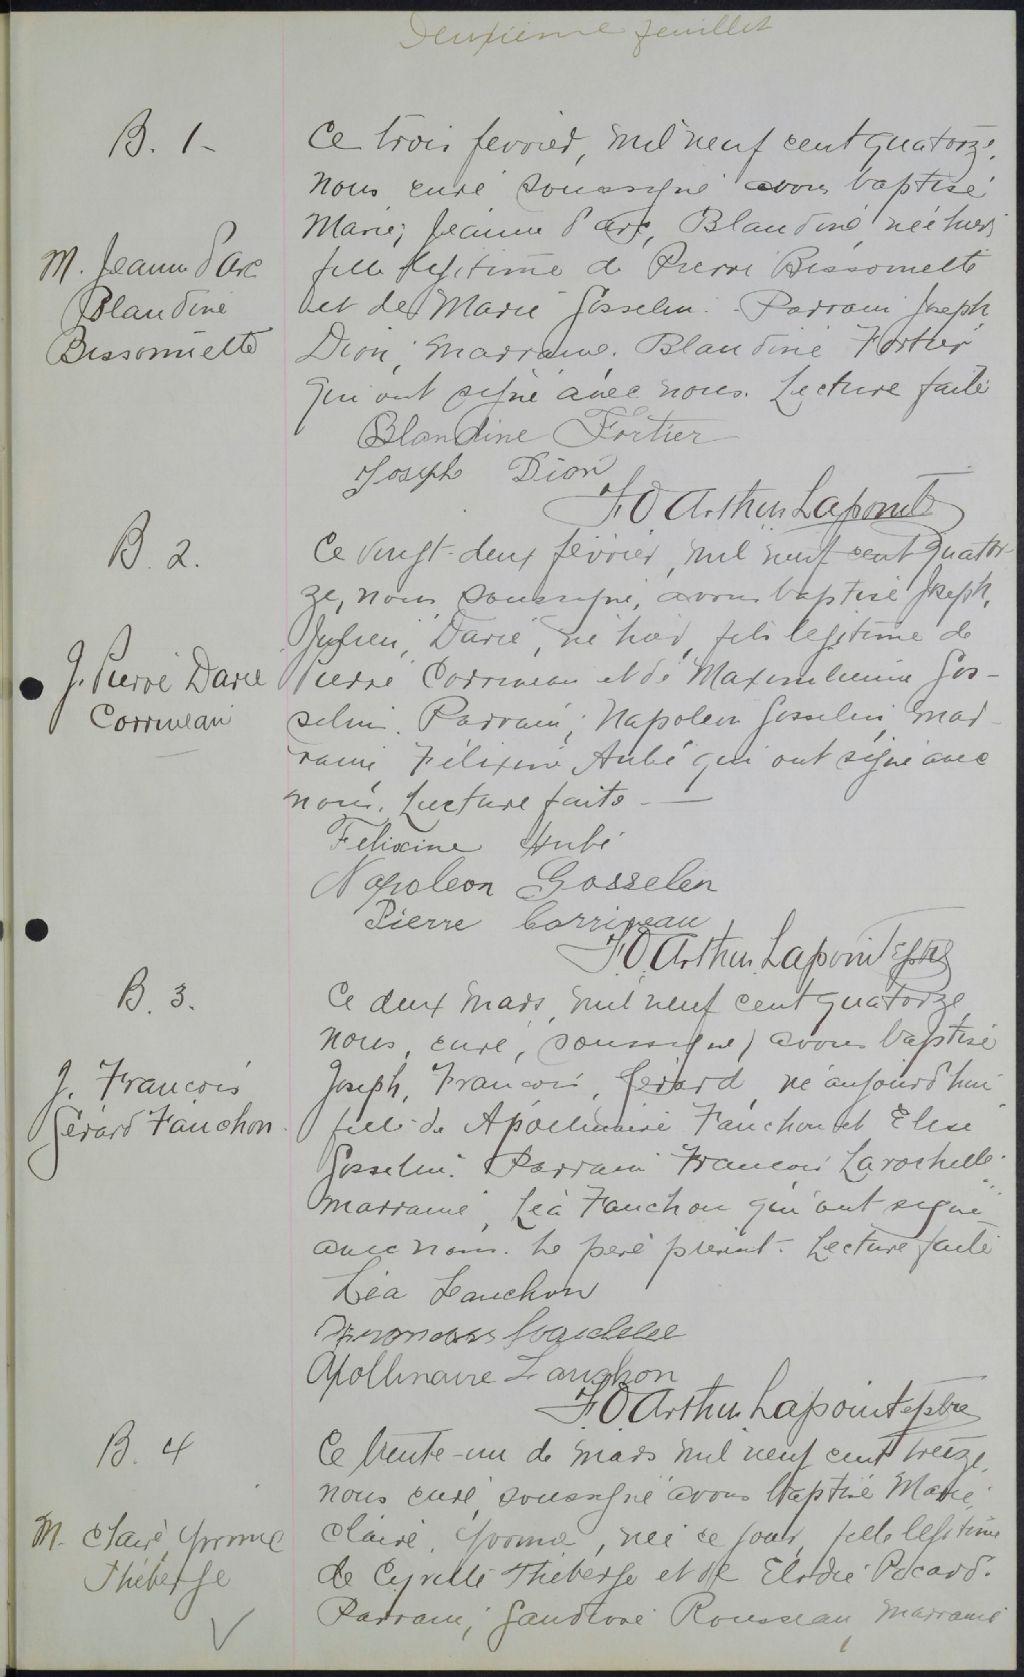 Deuxième feuillet
B. 1-
M. Jeanne d'Arc
Blandine
Bissonnette
Ce trois fevrier, mil neuf cent quatorze,
nous curé soussigné avons baptisé
Marie, Jeanne d'arc, Blandine, née hier,
fille légitime de Pierre Bissonnette
et de Marie Gosselin. Parrain Joseph
Dion, marraine. Blandine Fortier
qui ont signé avec nous. Lecture faite
Blandine Fortier
Joseph Dion
F. O Arthur Lapointe
B. 2.
J. Pierre Darie
Corriveau
Ce vingt-deux février, mil neuf cent quator-
ze, nous soussigné, avons baptisé Joseph,
Darie, né hier, fils légitime de
Pierre Corriveau et de Maximilienne Gos-
selin. Parrain, Napoléon Gosselin, mar-
raine Félixine Aubé qui ont signé avec
nous. Lecture faite -
Felixine Aubé
Napoleon Gosselin
Pierre Corriveau
F. O. Arthur Lapointe ptre
B. 3.
J. Francois
Gérard Fauchon.
Ce deux Mars, mil neuf cent quatorze,
nous, curé, soussigné, avons baptisé
Joseph, Francois, Gérard, né aujourd'hui
fils de Apollinaire Fauchon et Elise
Gosselin. Parrain Francois Larochelle.
marraine, Léa Fauchon qui ont signé
avec nous. Le père présent. Lecture faite
Léa Fauchon
Apollinaire Fauchon
F. O Arthur Lapointe ptre
B. 4
M. Claire Yvonne
Théberge
Ce trente-un de mars mil neuf cent treize,
nous curé soussigné avons baptisé Marie,
Claire, Yvonne, née ce jour, fille légitime
de Cyrille Théberge et de Elodie Pacard.
Parrain, Gaudiose Rousseau, marraine